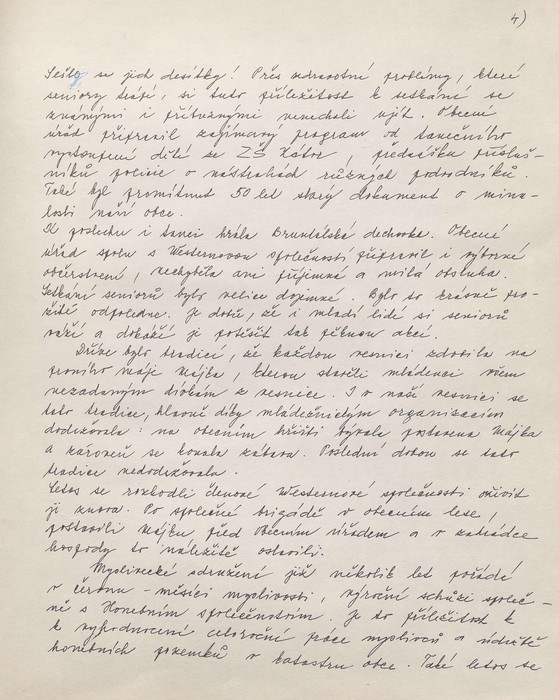 4)
Sešlo se jich desítky! Přes zdravotní problémy, které
seniory trápí, si tuto příležitost k setkání se
známými i přítvárnými nenechali ujít. Obecní
úřad připravil zajímavý program od tanečního
vystoupení dětí ze ZŠ Zátor, přednášku přísluš-
níků policie o nástrahách různých podvodníků.
Také byl promítnut 50 let starý dokument o minu-
losti naší obce.
K poslechu i tanci hrála Bruntálská dechovka. Obecní
úřad spolu s Westernovou společností připravil i výborné
občerstvení, nechyběla ani příjemná a milá obsluha.
Setkání seniorů bylo velice dojemné. Bylo to krásně pro-
žité odpoledne. Je dobře, že i mladí lidé si seniorů
váží a dokáží je potěšit tak pěknou akcí.
Dříve bylo tradicí, že každou vesnici zdobila na
prvního máje májka, kterou stavěli mládenci všem
nezadaným dívkám z vesnice. I v naší vesnici se
tato tradice, hlavně díky mládežnickým organizacím
dodržovala: na obecním hřišti bývala postavena májka
a zároveň se konala zábava. Poslední dobou se tato
tradice nedodržovala.
Letos se rozhodli členové Westernové společnosti oživit
ji znova. Po společné brigádě v obecním lese,
postavili májku před Obecním úřadem a v zahrádce
hospody to náležitě oslavili.
Myslivecké sdružení již několik let pořádá
v červnu - měsíci myslivosti, výroční schůzi společ-
ně s Honebním společenstvím. Je to příležitost k
k vyhodnocení celoroční práce myslivců a údržbě
honebních pozemků v katastru obce. Také letos se